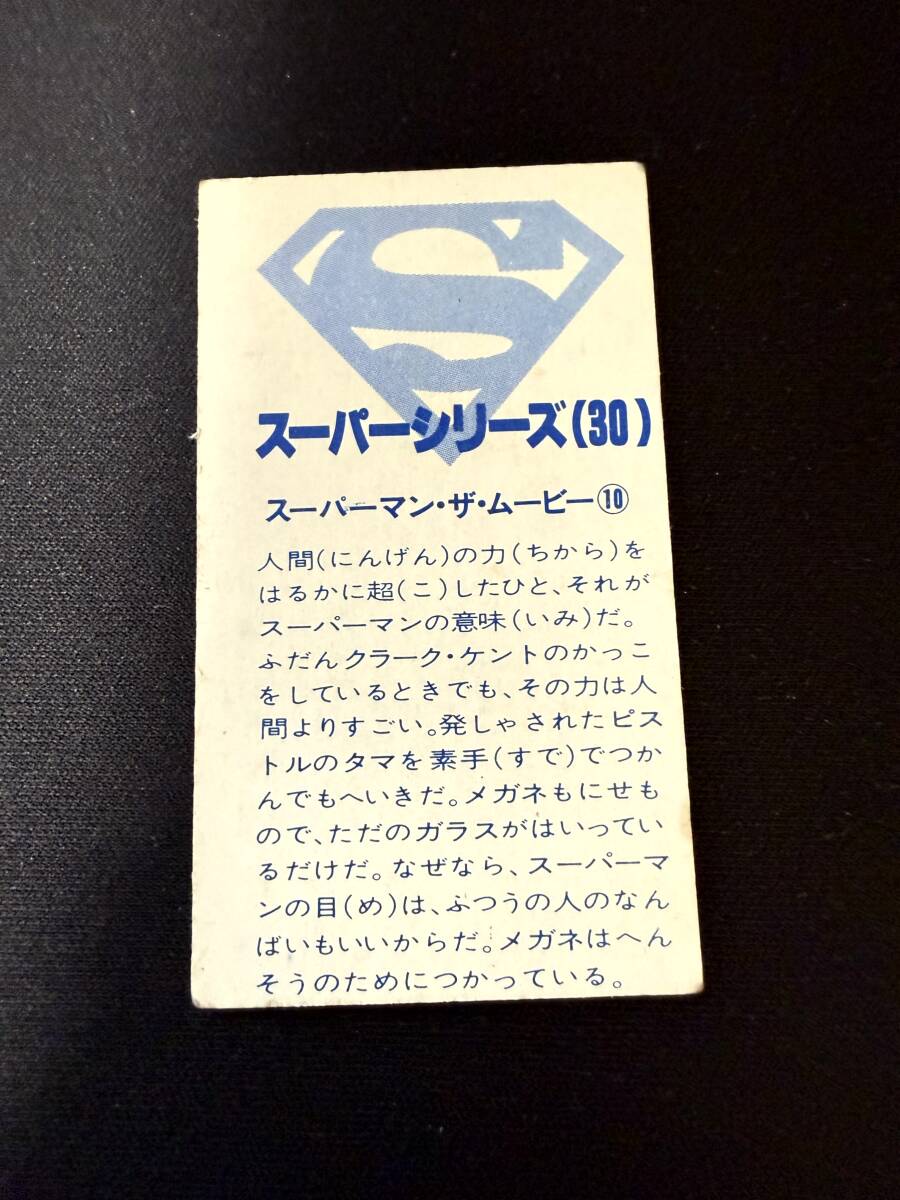 S
スーパーシリーズ(30)
スーパーマン・ザ・ムービー⑩
人間(にんげん)の力(ちから)を
はるかに超(こ)したひと、それが
スーパーマンの意味(いみ)だ。
ふだんクラーク・ケントのかっこ
をしているときでも、その力は人
間よりすごい。発しゃされたピス
トルのタマを素手(すで)でつか
んでもへいきだ。メガネもにせも
ので、ただのガラスがはいってい
るだけだ。なぜなら、スーパーマ
ンの目(め)は、ふつうの人のなん
ばいもいいからだ。メガネはへん
そうのためにつかっている。